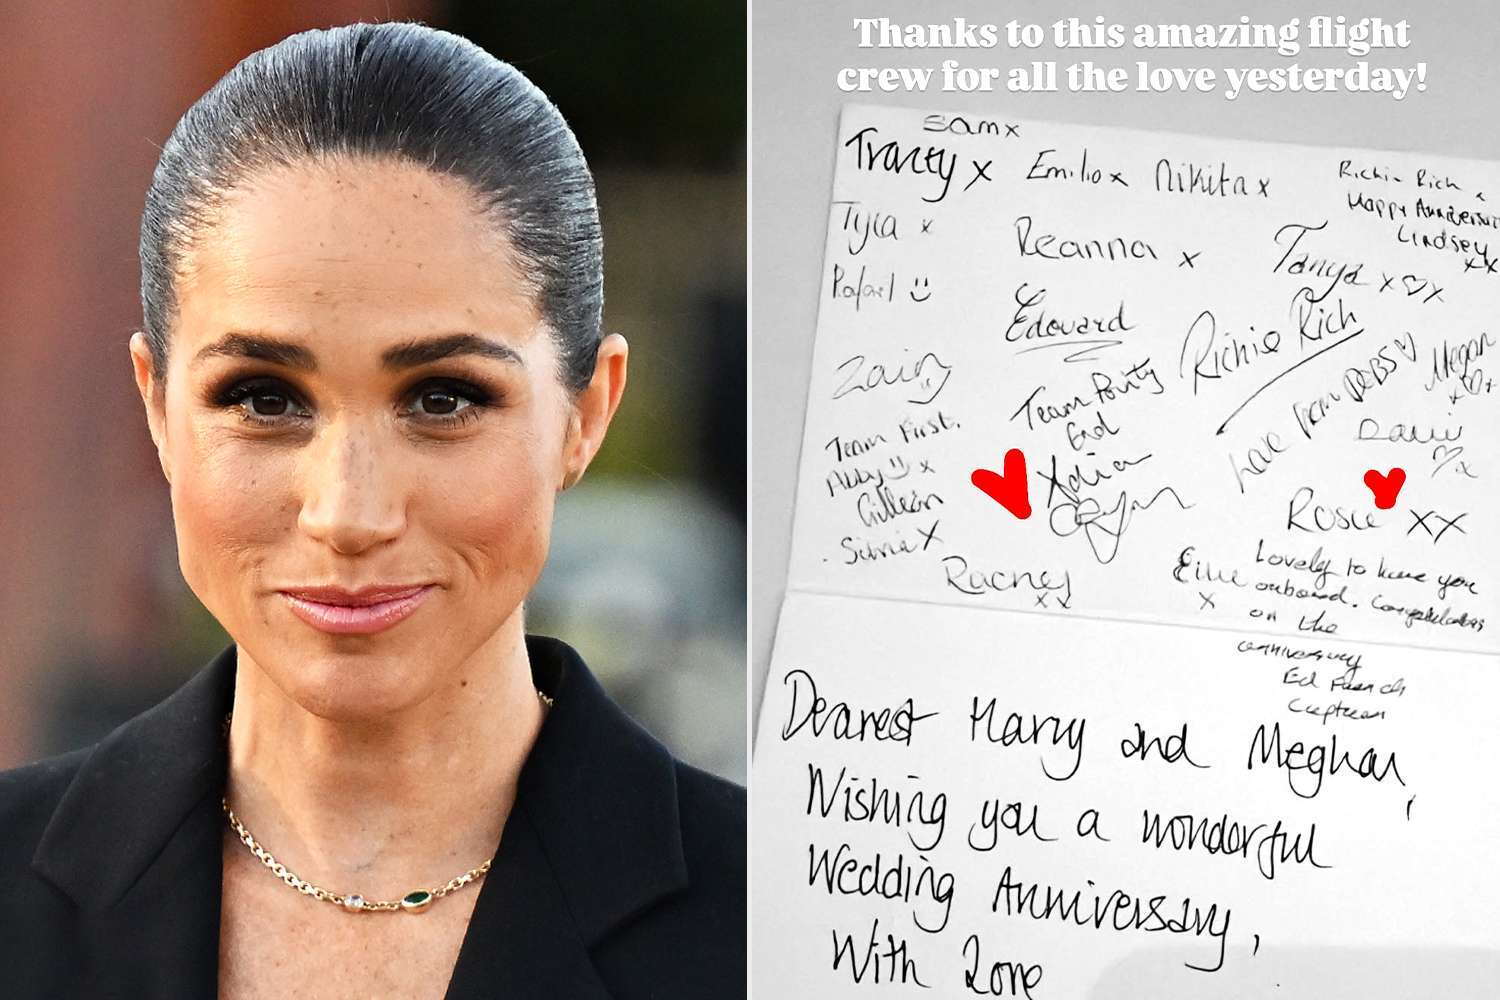 Thanks to this amazing flight
crew for all the love yesterday!
Samx
Tracey x Emilio x Nikita x
Richie Rich x
Happy Anniversary
Lindsey
xx
Tyla x
Reanna x
Tanya x♡x
Rafael
Edouard
Richie Rich
Megan
Zain
Team Purity
End
Love from DEBS ♡
Team First.
Abby x
Gillean
Silvia X
Rosie XX
Racney
xx
Lovely to have you
onboard. Congratulations
x
on the
anniversary
Ed French
Captain
Dearest Harry and Meghan,
Wishing you a wonderful
Wedding Anniversary,
With Love